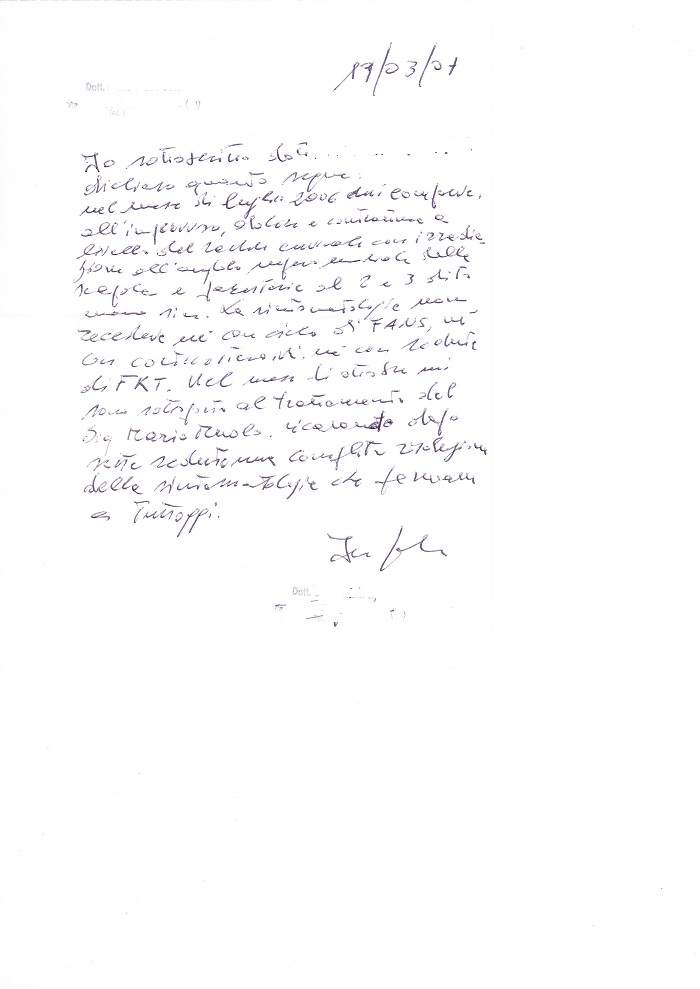 19/03/07
Dott.
Via
Io sottoscritto dott.
dichiaro quanto segue:
nel mese di luglio 2006 mi comparve,
all'improvviso, dolore e contrattura a
livello del rachide cervicale con irradia
zione all'angolo della
scapola e parestesie al 2 e 3 dito
mano sin. La sintomatologia non
recedeva né con ciclo di FANS, né
con cortisonici né con sedute
di FKT. Nel mese di ottobre mi
sono sottoposto al trattamento del
Sig Mario ricavando dopo
sette sedute una completa risoluzione
della sintomatologia che permane
a tutt'oggi.
In fede
Dott.